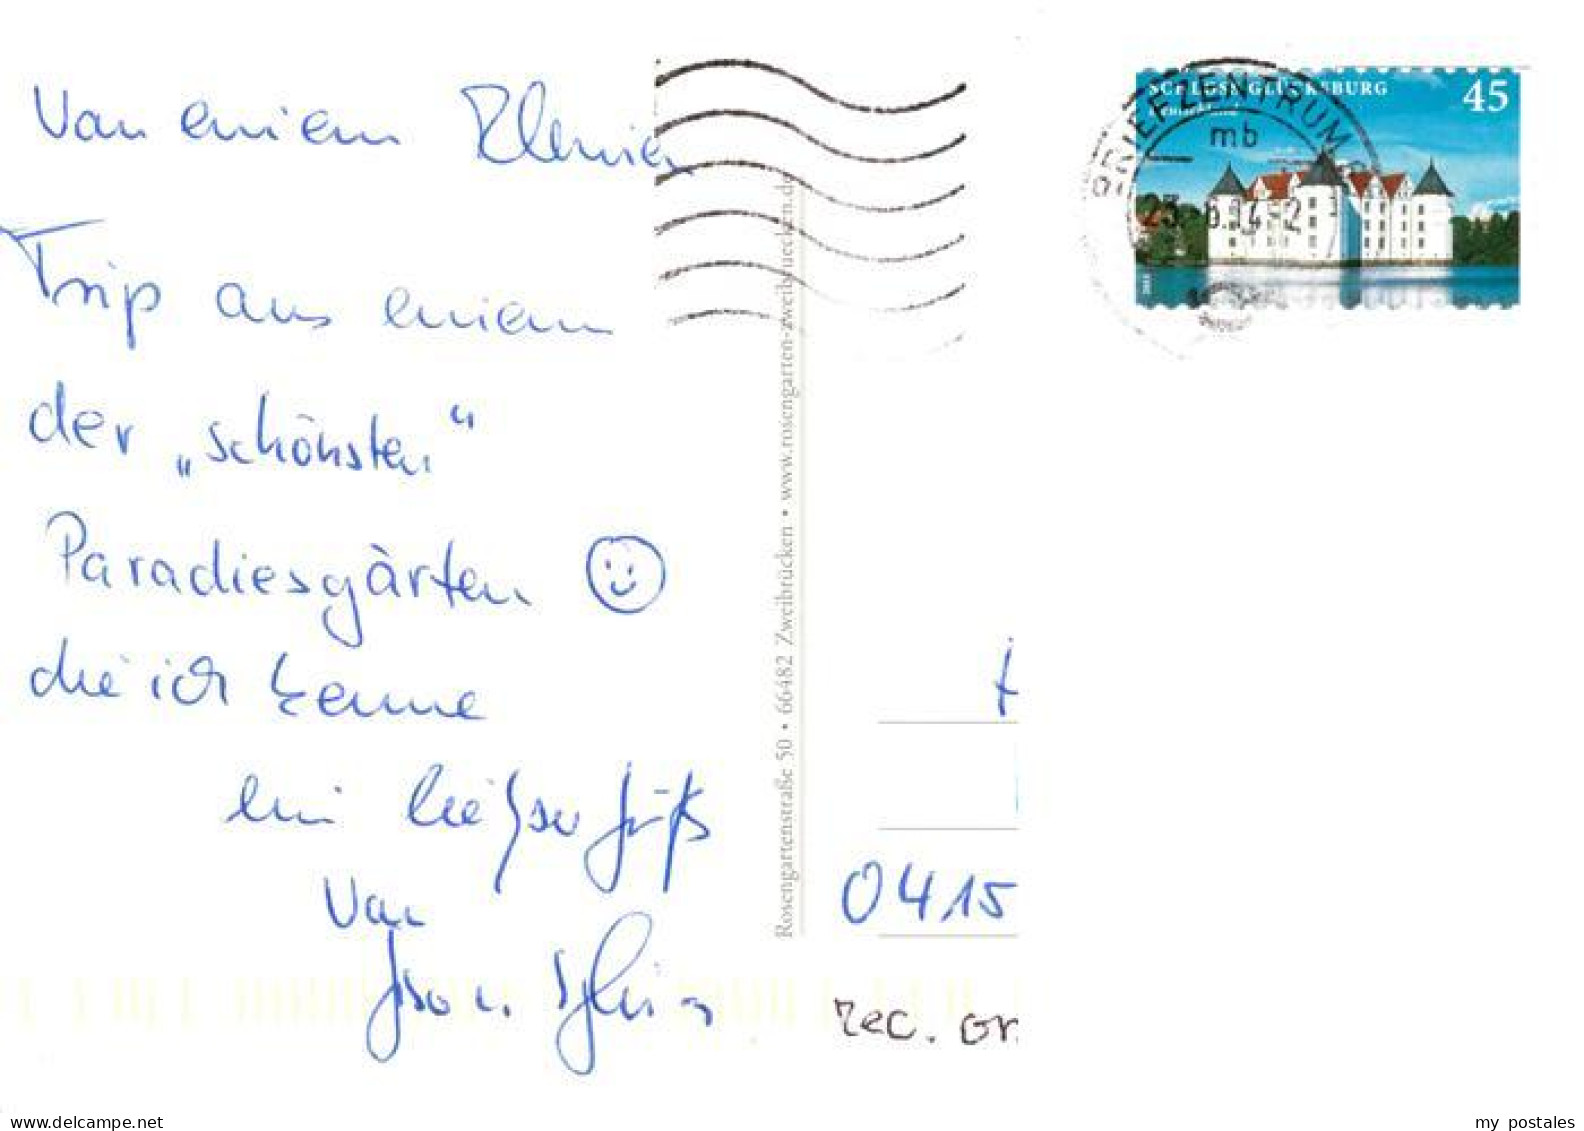 Von einem kleinen
Trip aus einem
der „schönsten“
Paradiesgärten
die ich kenne
ein lieber Gruß
von
Rosengartenstraße 50 • 66482 Zweibrücken • www.rosengarten-zweibruecken.de
SCHLOSS GLÜCKSBURG 45
Deutschland
BRIEFZENTRUM
mb
0415
rec. on
www.delcampe.net
my postales